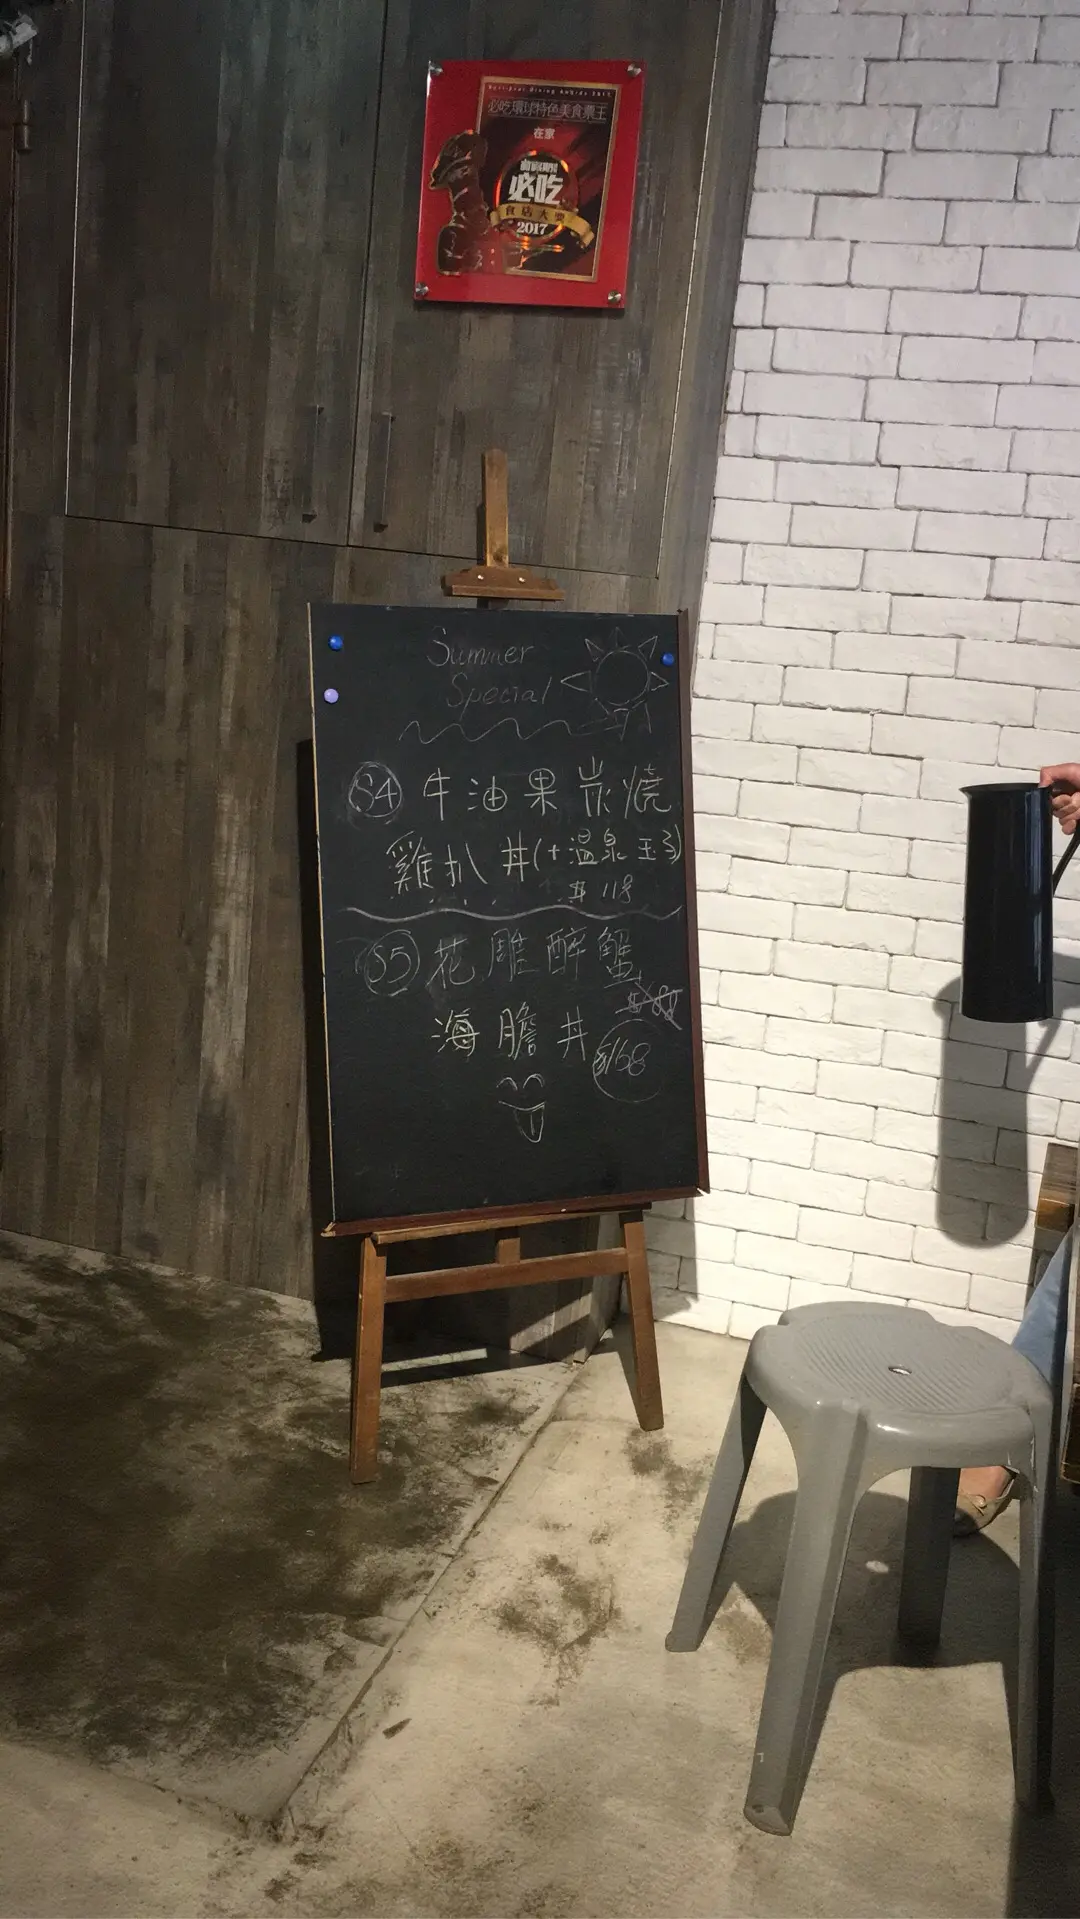 必吃環球特色美食票王
在家
必吃
食店大獎
2017
Summer
Special
S4 牛油果炭燒
雞扒丼(+溫泉玉子)
S5 花雕醉蟹
海膽丼
$168